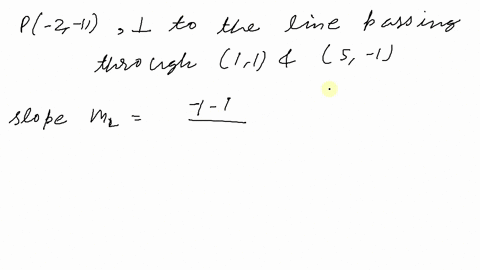 P(-2,-11), ⊥ to the line passing
through (1,1) & (5,-1)
slope m₂ = -1-1